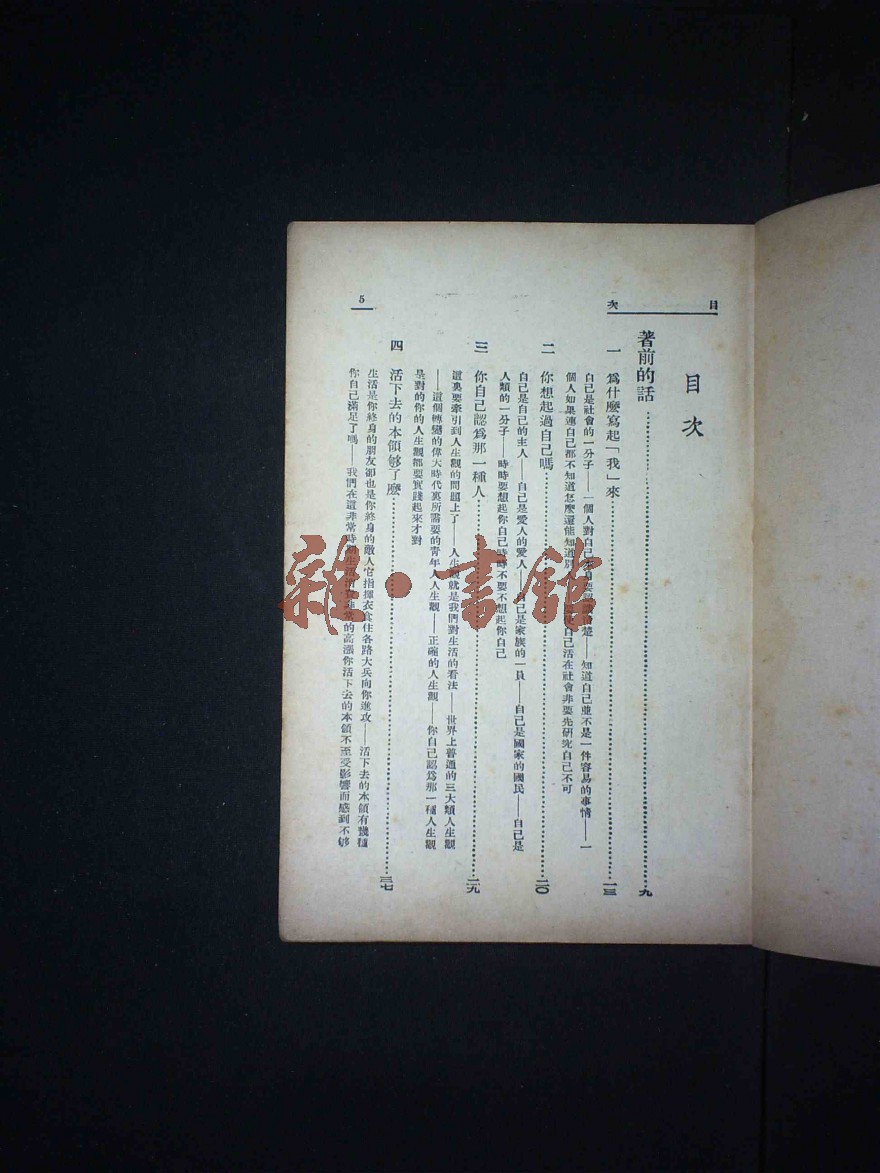 目次
目次
著前的話……九
一 爲什麼寫起「我」來……一三
自己是社會的一分子——一個人對自己本身要認識淸楚——知道自己並不是一件容易的事情——一
個人如果連自己都不知道怎麼還能知道別 自己活在社會非要先研究自己不可
二 你想起過自己嗎……二〇
自己是自己的主人——自己是愛人的愛人——自己是家族的一員——自己是國家的國民——自己是
人類的一分子——時時要想起你自己時時不要不想起你自己
三 你自己認爲那一種人……二九
這裏要牽引到人生觀的問題上了——人生觀就是我們對生活的看法——世界上普通的三大類人生觀
——這個轉變的偉大時代裏所需要的靑年人人生觀——正確的人生觀——你自己認爲那一種人生觀
是對的你的人生觀都要實踐起來才對
四 活下去的本領够了麽……三七
生活是你終身的朋友卻也是你終身的敵人它指揮衣食住各路大兵向你進攻——活下去的本領有幾種
你自己滿足了嗎——我們在這非常時期生活 的高漲你活下去的本領不至受影響而感到不够
5
雜·書館